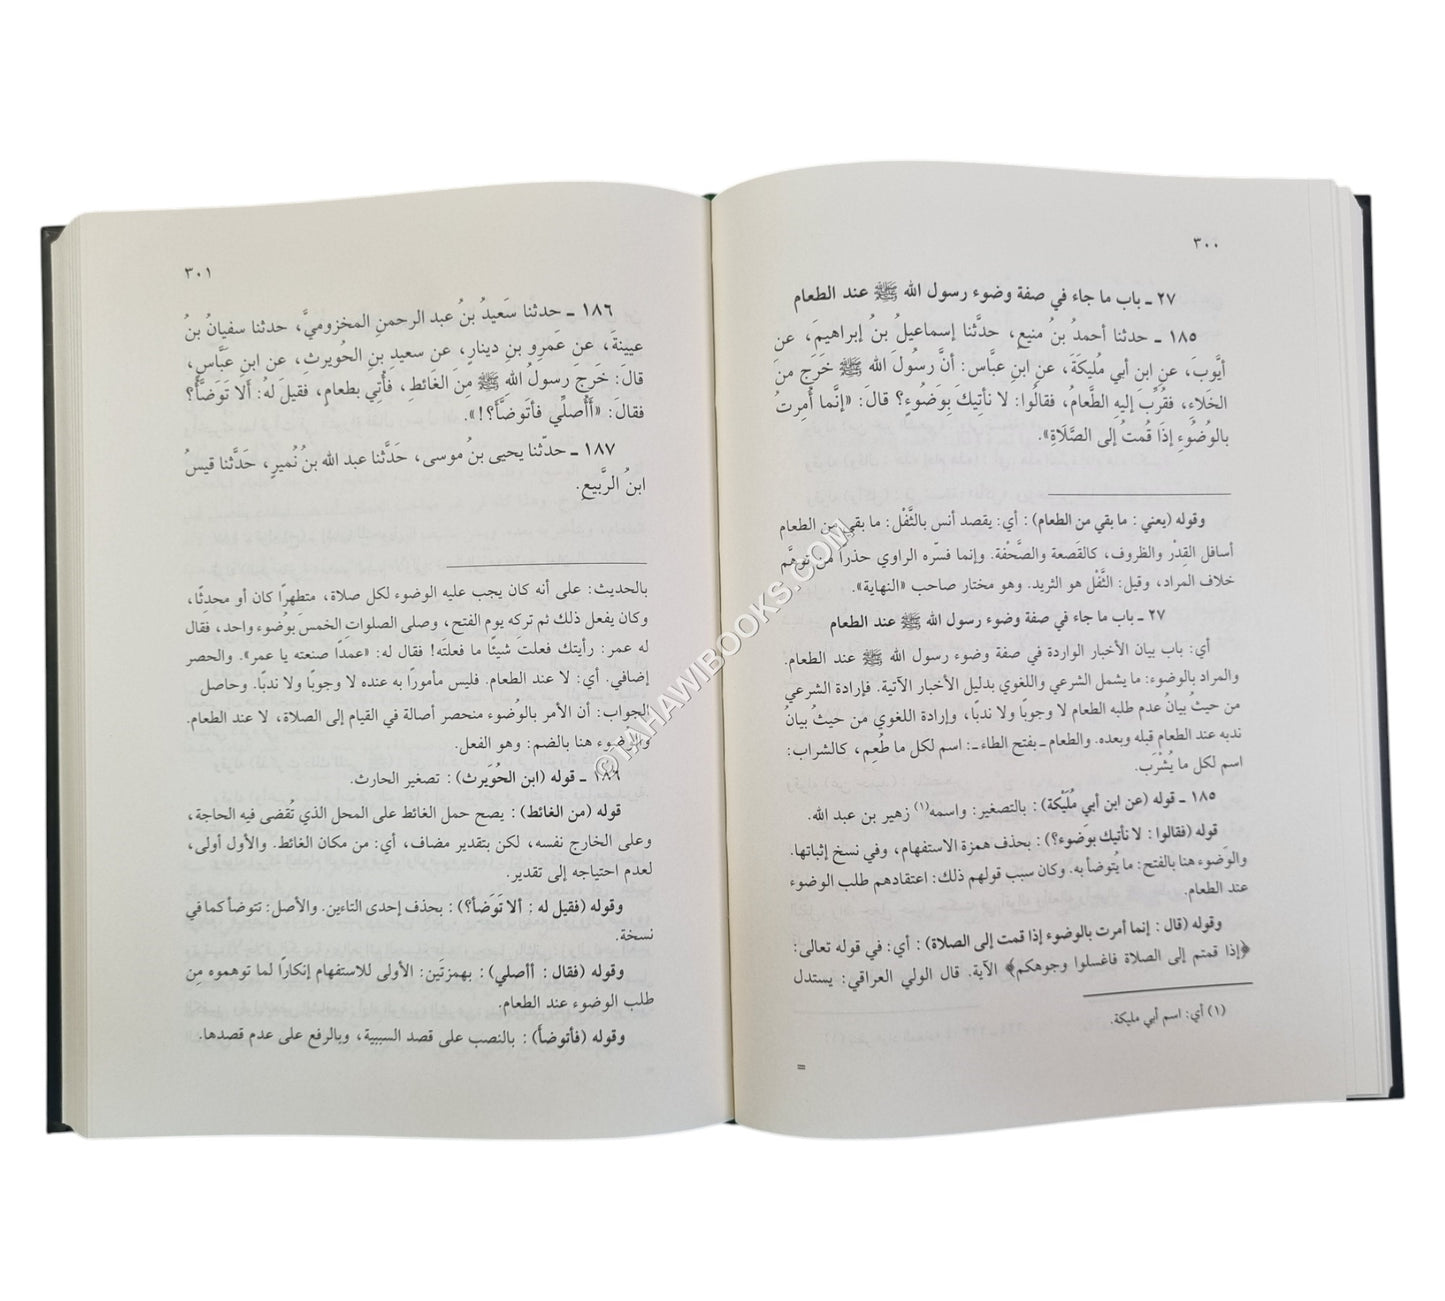 ٣٠٠
٢٧ ـ باب ما جاء في صفة وضوء رسول الله ﷺ عند الطعام
١٨٥ ـ حدثنا أحمدُ بنُ منيعٍ، حدَّثنا إسماعيلُ بنُ إبراهيمَ، عن
أيُّوبَ، عنِ ابنِ أبي مُليكَةَ، عنِ ابنِ عبَّاس: أنَّ رسُولَ الله ﷺ خَرَج منَ
الخلَاء، فقُرِّبَ إليهِ الطَّعامُ، فقالُوا: لا نأتيكَ بِوَضُوءٍ؟ قالَ: «إنَّما أُمِرتُ
بالوُضُوءِ إذَا قُمتُ إلى الصَّلَاةِ».
وقوله (يعني: ما بقي من الطعام): أي: يقصد أنس بالثُّفْل: ما بقي من الطعام
أسافل القِدْر والظروف، كالقَصعة والصَّحْفة. وإنما فسّره الراوي حذراً من توهَّم
خلاف المراد، وقيل: الثُّفْل هو الثريد. وهو مختار صاحب «النهاية».
٢٧ ـ باب ما جاء في صفة وضوء رسول الله ﷺ عند الطعام
أي: باب بيان الأخبار الواردة في صفة وضوء رسول الله ﷺ عند الطعام.
والمراد بالوضوء: ما يشمل الشرعي واللغوي بدليل الأخبار الآتية. فإرادة الشرعي
من حيثُ بيانُ عدم طلبه الطعام لا وجوبًا ولا ندبًا، وإرادة اللغوي من حيثُ بيانُ
ندبه عند الطعام قبله وبعده. والطعام ـ بفتح الطاء ـ: اسم لكل ما طُعِم، كالشراب:
اسم لكل ما يُشْرَب.
١٨٥ ـ قوله (عن ابن أبي مُلَيْكة): بالتصغير: واسمه(١) زهير بن عبد الله.
قوله (فقالوا: لا نأتيك بوَضوء؟): بحذف همزة الاستفهام، وفي نسخ إثباتها.
والوَضوء هنا بالفتح: ما يُتوضأ به. وكان سبب قولهم ذلك: اعتقادهم طلب الوضوء
عند الطعام.
وقوله (قال: إنما أمرت بالوضوء إذا قمت إلى الصلاة): أي: في قوله تعالى:
﴿إذا قمتم إلى الصلاة فاغسلوا وجوهكم﴾ الآية. قال الولي العراقي: يستدل
(١) أي: اسم أبي مليكة.
=
٣٠١
١٨٦ ـ حدثنا سَعيدُ بنُ عبد الرحمنِ المخزوميَّ، حدثنا سفيانُ بنُ
عيينةَ، عن عَمرِو بنِ دينارٍ، عن سعيدِ بنِ الحُويرثِ، عن ابنِ عَبَّاسٍ،
قالَ: خَرجَ رسولُ اللهِ ﷺ مِنَ الغَائطِ، فأُتِي بطعامٍ، فقيلَ لهُ: ألَا تَوَضَّأُ؟
فقالَ: «أَأُصلِّي فأتَوضأَ؟!».
١٨٧ ـ حدّثنا يحيى بنُ مُوسى، حَدَّثنا عبد الله بنُ نُميرٍ، حَدَّثنا قيسُ
ابنُ الرَّبيعِ.
بالحديث: على أنه كان يجب عليه الوضوء لكل صلاة، متطهرًا كان أو محدثًا،
وكان يفعل ذلك ثم تركه يوم الفتح، وصلى الصلواتِ الخمسَ بوُضوء واحد، فقال
له عمر: رأيتك فعلت شيئًا ما فعلتَه! فقال له: «عمدًا صنعته يا عمر». والحصر
إضافي. أي: لا عند الطعام. فليس مأمورًا به عنده لا وجوبًا ولا ندبًا. وحاصل
الجواب: أن الأمر بالوُضوء منحصر أصالة في القيام إلى الصلاة، لا عند الطعام.
والوضوء هنا بالضم: وهو الفعل.
١٨٦ ـ قوله (ابن الحُوَيرث): تصغير الحارث.
قوله (من الغائط): يصح حمل الغائط على المحل الذي تُقضى فيه الحاجة،
وعلى الخارج نفسه، لكن بتقدير مضاف، أي: من مكان الغائط. والأول أولى،
لعدم احتياجه إلى تقدير.
وقوله (فقيل له: ألا تَوَضأ؟): بحذف إحدى التاءين. والأصل: تتوضأ كما في
نسخة.
وقوله (فقال: أأصلي): بهمزتَين: الأولى للاستفهام إنكارًا لما توهموه مِن
طلب الوضوء عند الطعام.
وقوله (فأتوضأَ): بالنصب على قصد السببية، وبالرفع على عدم قصدها.
©TAHAWIBOOKS.COM